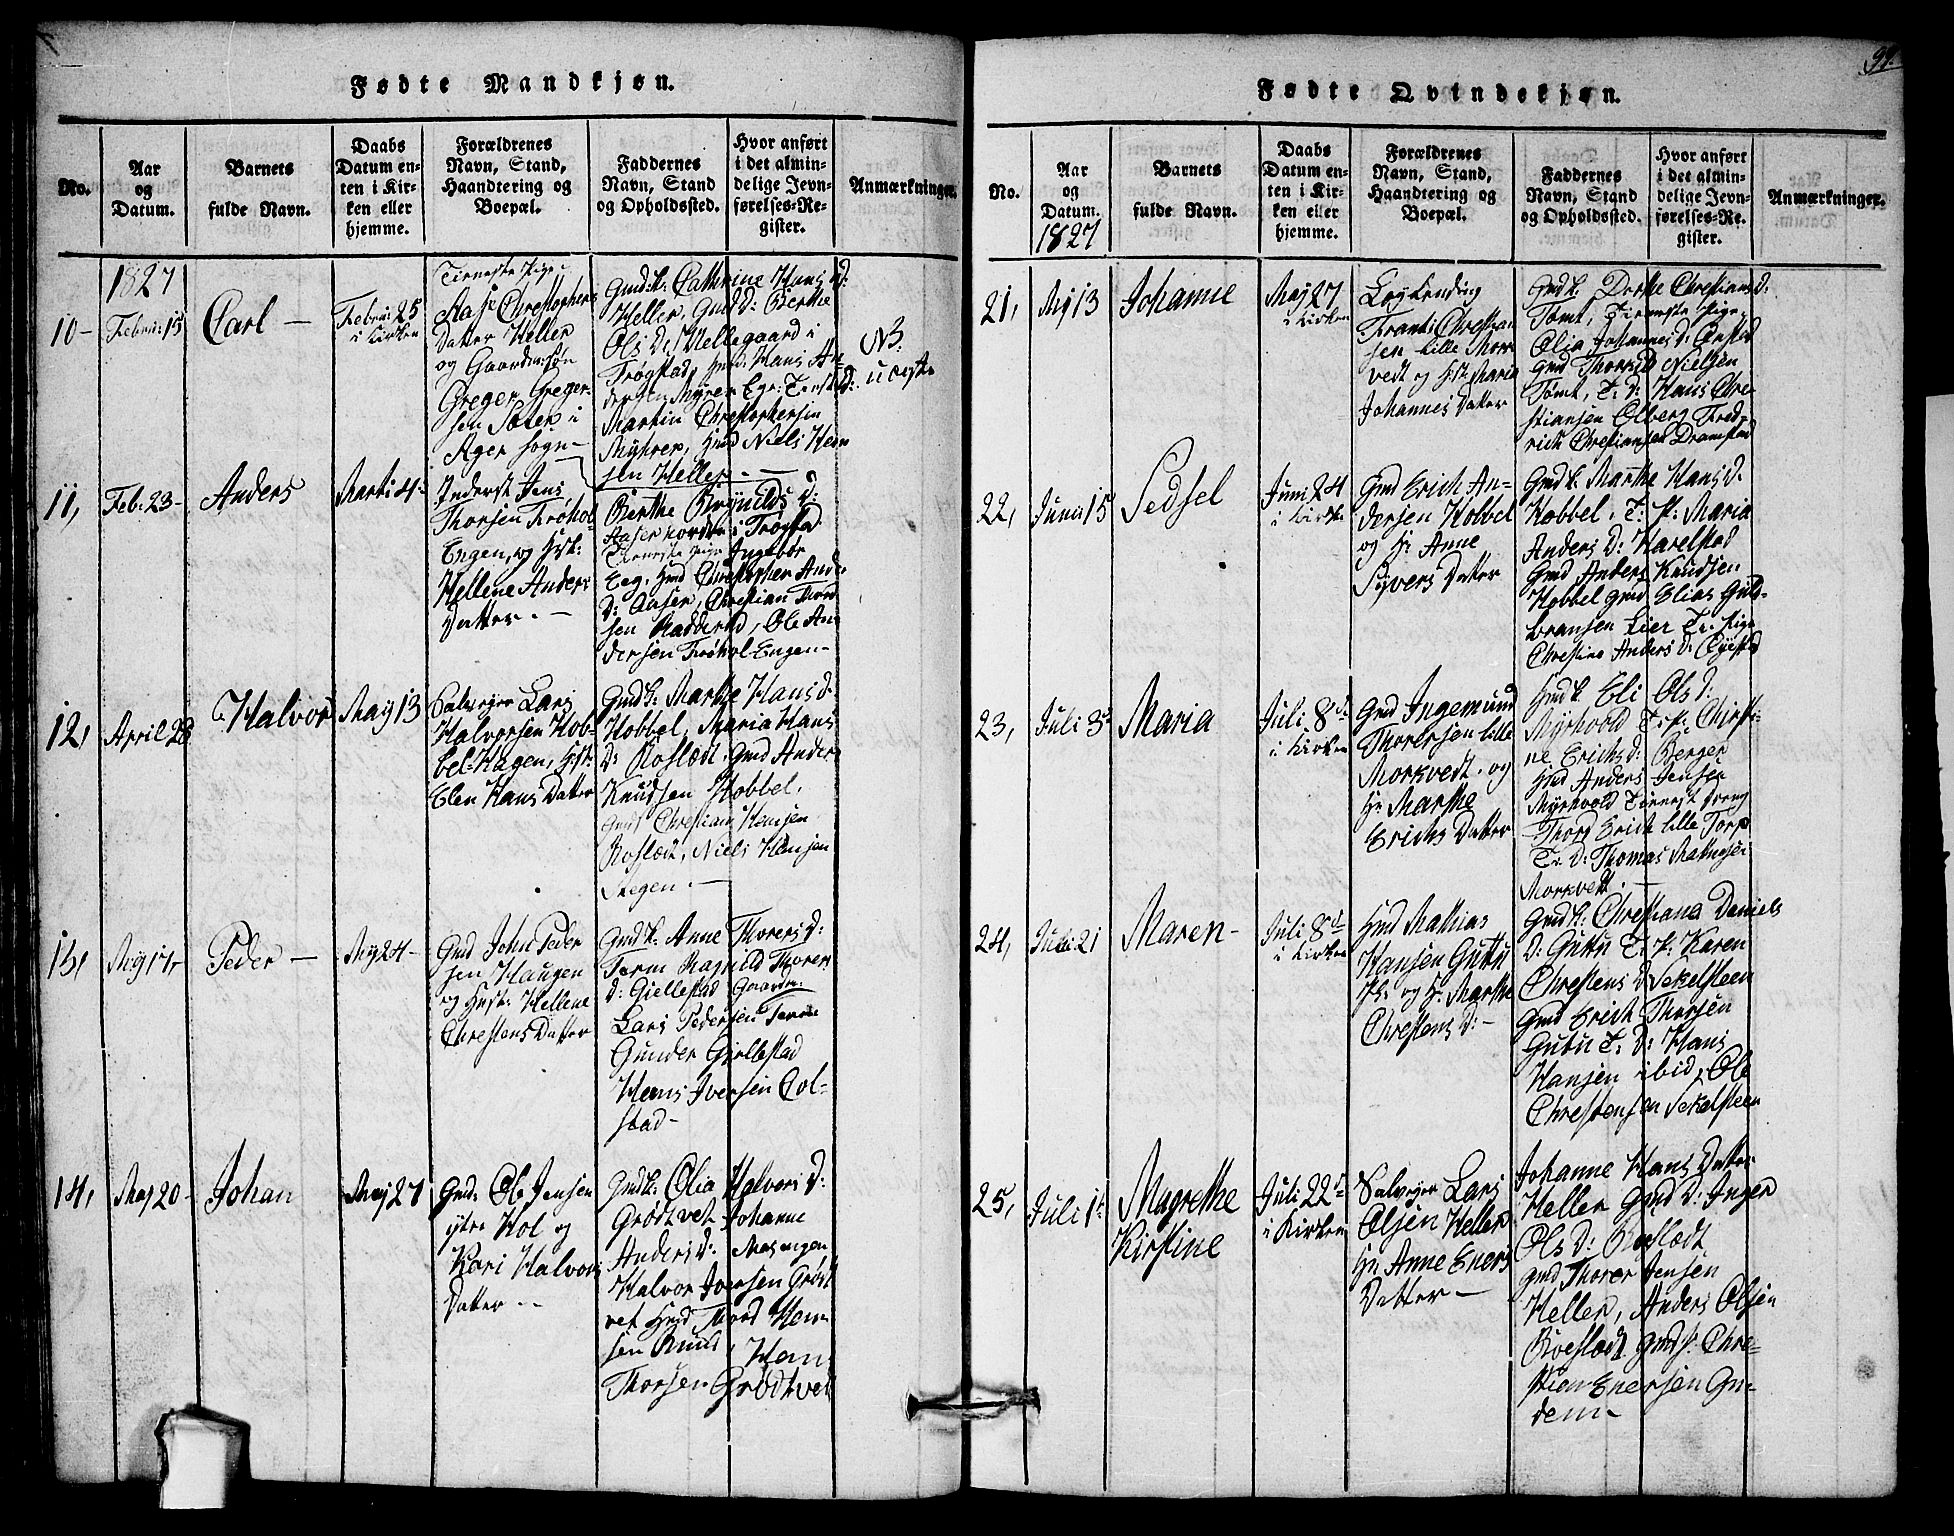 91.
Fødte Mandkjøn.
No.
Aar
og
Datum.
Barnets
fulde Navn.
Daabs
Datum en-
ten i Kir-
ken eller
hjemme.
Forældrenes
Navn, Stand,
Haandtering og
Boepæl.
Faddernes
Navn, Stand
og Opholdssted.
Hvor anført
i det almin-
delige Jevn-
førelses-Re-
gister.
Anmærkninger.
1827
10 -
Februar 15
Carl -
Februar 25
i Kirken
Tieneste Pige
Aase Christophers
Datter Heller
og Gaardm: søn
Greger Greger-
sen Sæter i
Ager Sogn -
Gmdk. Cathrine Hans D:
Heller, Gmd D: Berthe
Ols D: Mellegaard i
Trøgstad, Hans An-
dersen Myrer
Martin Christophersen
Myhrer, Hmd Niels Han
sen Heller -
NB.
uægte
11,
Feb: 23 -
Anders
Marti 4 -
Inderst Jens
Thorsen Frøhol
Engen, og Hst:
Hellene Anders
Datter. -
Berthe Brynilds D:
Aaser nordre i Trøgstad
Tieneste Pige Ingebor
Eeg, Hmd Christopher Anders
D: Aaser, Christian Thord
sen Radderud, Ole An
dersen Frøhol-Engen -
12,
April 28
Halvor
Maij 13
Salvejer Lars
Halvorsen Hob-
bel-Hagen, Hst:
Elen Hans Datter
Gmdk: Marthe Hans D
Hobbel, Maria Hans
D: Roslædt. Gmd Anders
Knudsen Hobbel,
Gmd Christian Hansen
Roslædt, Niels Hansen
Skegen. -
13,
Maj 17,
Peder -
Maj 24 -
Gmd John Peder
sen Haugen
og Hust: Hellene
Christens Datter
Gmdk. Anne Thorers D:
Term Ragnild Thorer
D: Giellestad Gaardm:
Lars Pedersen Term
Gunder Giellestad
Hans Iversen Col-
stad -
14,
Maj 20 -
Johan
Maj 27
Gmd: Ole Jensen
ytre Hol og
Kari Halvors
Datter - -
Gmdk: Olia Halvors D:
Grødtvet Johanne
Anders D: Masengen
Halvor Iversen Grødt
vet Hmd Thord Han
sen Ruud, Hans
Thorsen Grødtvet
Fødte Qvindekjøn.
No.
Aar
og
Datum.
1827
Barnets
fulde Navn.
Daabs
Datum en-
ten i Kir-
ken eller
hjemme.
Forældrenes
Navn, Stand,
Haandtering og
Boepæl.
Faddernes
Navn, Stand
og Opholdssted.
Hvor anført
i det almin-
delige Jevn-
førelses-Re-
gister.
Anmærkninger.
21,
Maj 13
Johanne
Maj 27
i Kirken
Frants Christian
sen lille Mork
vedt og Hst: Maria
Johannes Datter
Gmdk. Dorthe Christians D:
Tomt, Tieneste Pige
Olia Johannes D:
Gmd Thorkild Nielsen
Tomt, T. D: Hans Chri
stiansen Olberg Fred-
rich Christiansen Dramstad
22,
Juni 15
Sedsel
Juni 24
i Kirken
Gmd Erich An-
dersen Hobbel
og H: Anne
Syvers Datter
Gmdk. Marthe Hans D.
Hobbel. T: P: Maria
Anders D: Harelstad
Gmd Anders Knudsen
Hobbel Gmd Elias Guld-
bransen Lier T: Pige
Christine Anders D:
23,
Juli 3
Maria
Juli 8de
i Kirken
Gmd Ingemund
Thorersen lille
Morkvedt. og
H: Marthe
Erichs Datter
Hmdk Eli Ols D:
Myrhvold T: P: Christi-
ne Erichs D: Berger
Hmd Anders Jensen
Myrhvold Tienest Dreng
Thord Erich lille Torp
T: D: Thomas
Morkvedt. -
24,
Juli 21
Maren -
Juli 8de
i Kirken
Hmd Mathias
Hansen Guttu
og H. Marthe
Christens D: -
Gmdk: Christiana Daniels
D: Guttu T: P: Karen
Christens D Sekelsteen
Gmd Erich Thorsen
Gutu T: D: Hans
Hansen ibid, Ole
Christensen Sekelsteen
25,
Juli 1
Magrethe
Kirstine
Juli 22
i Kirken
Salvejer Lars
Olsen Heller
H: Anne Eners
Datter -
Johanne Hans Datter
Heller Gmd D: Inger
Ols D: Roslædt
Gmd Thorer Jensen
Heller, Anders Olsen
Roeslædt Gmd S: Chri-
stian Enersen Gu-
dem -